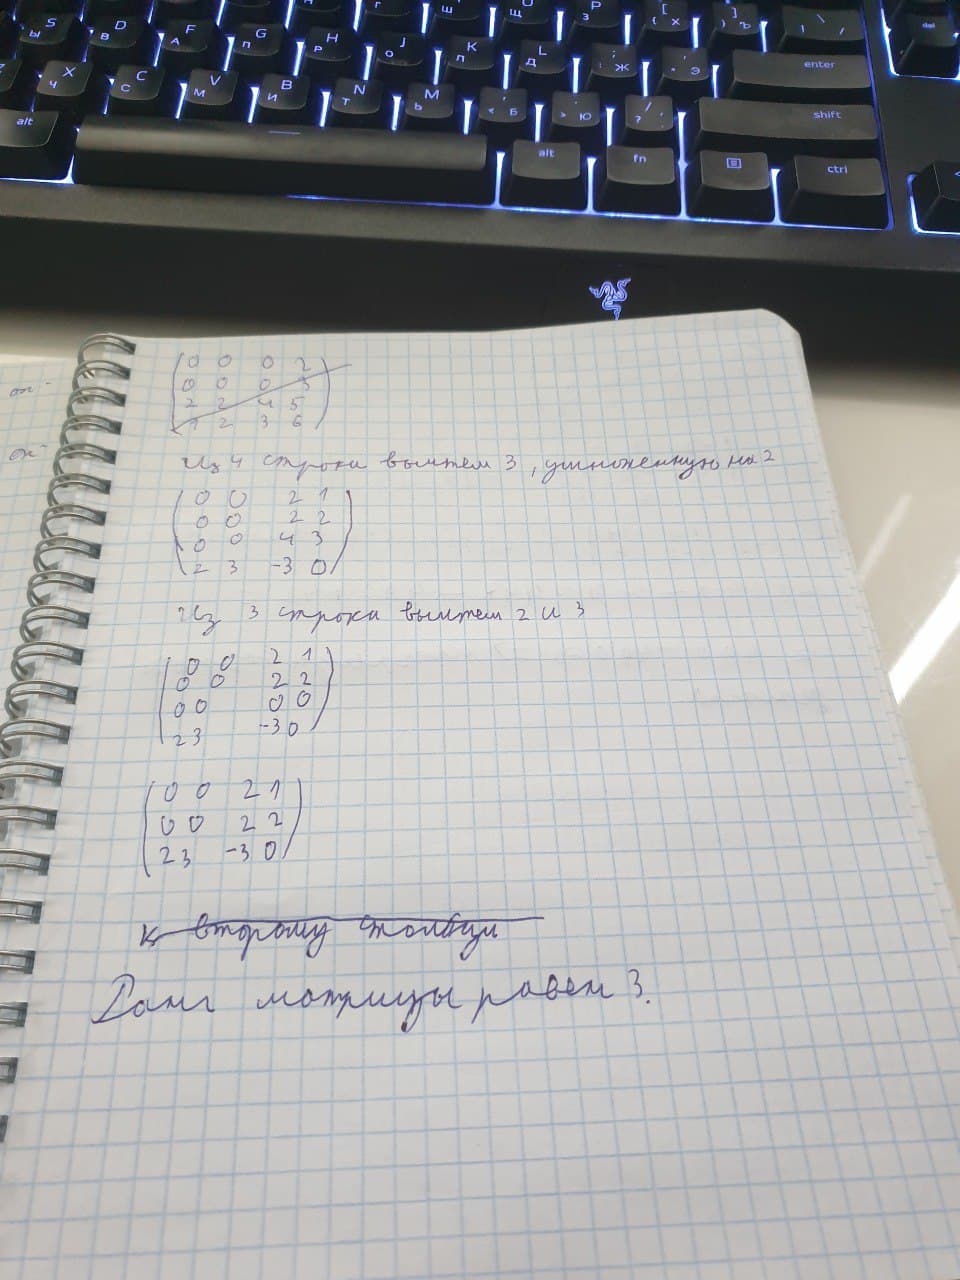 S Ы D В F А G П H Р J О K Л L Д : ; Ж " ' Э enter
X Ч C С V М B И N Т M Ь < , Б > . Ю / ? shift
alt alt fn ctrl
del
0 0 0 2
0 0 0 3
2 2 4 5
1 2 3 6
Из 4 строки вычтем 3, умноженную на 2
0 0 2 1
0 0 2 2
0 0 4 3
2 3 -3 0
Из 3 строки вычтем 2 и 3
0 0 2 1
0 0 2 2
0 0 0 0
2 3 -3 0
0 0 2 1
0 0 2 2
2 3 -3 0
к второму столбци
Ранг матрицы равен 3.